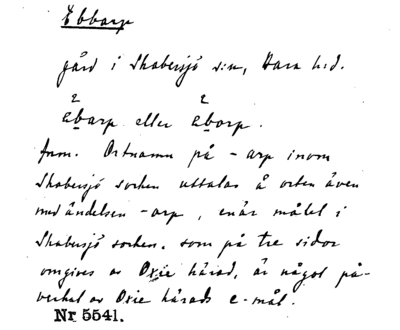 Ebbarp
gård i Skabersjö s:n, Bara h:d.
2 2
ebarp eller eborp.
Anm. Ortnamn på -arp inom
Skabersjö socken uttalas å orten även
med ändelsen -orp, enär målet i
Skabersjö socken, som på tre sidor
omgives av Oxie härad, är något på-
verkat av Oxie härads e-mål.
Nr 5541.